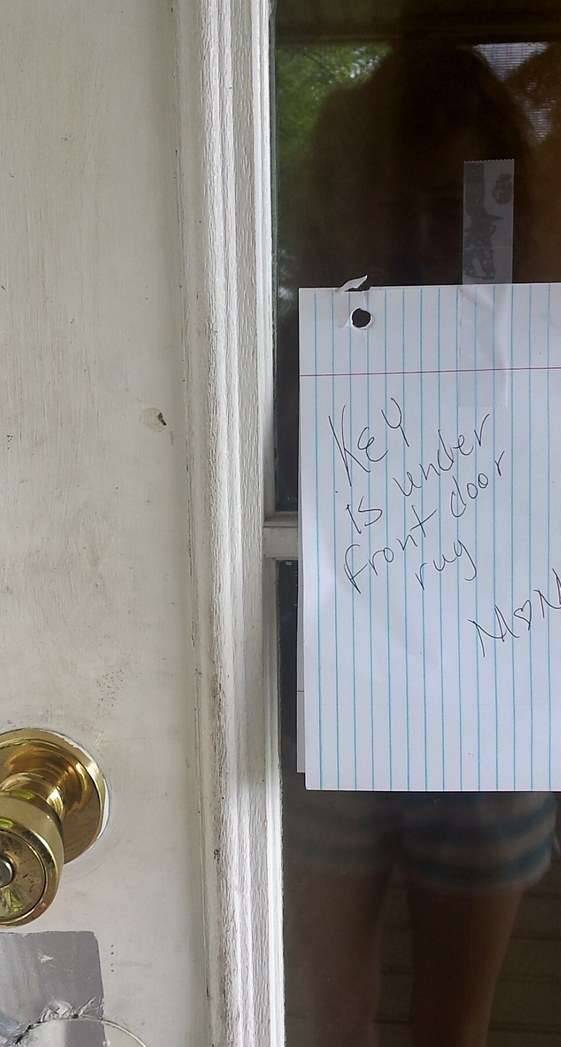 KEY
is under
front door
rug
MOM